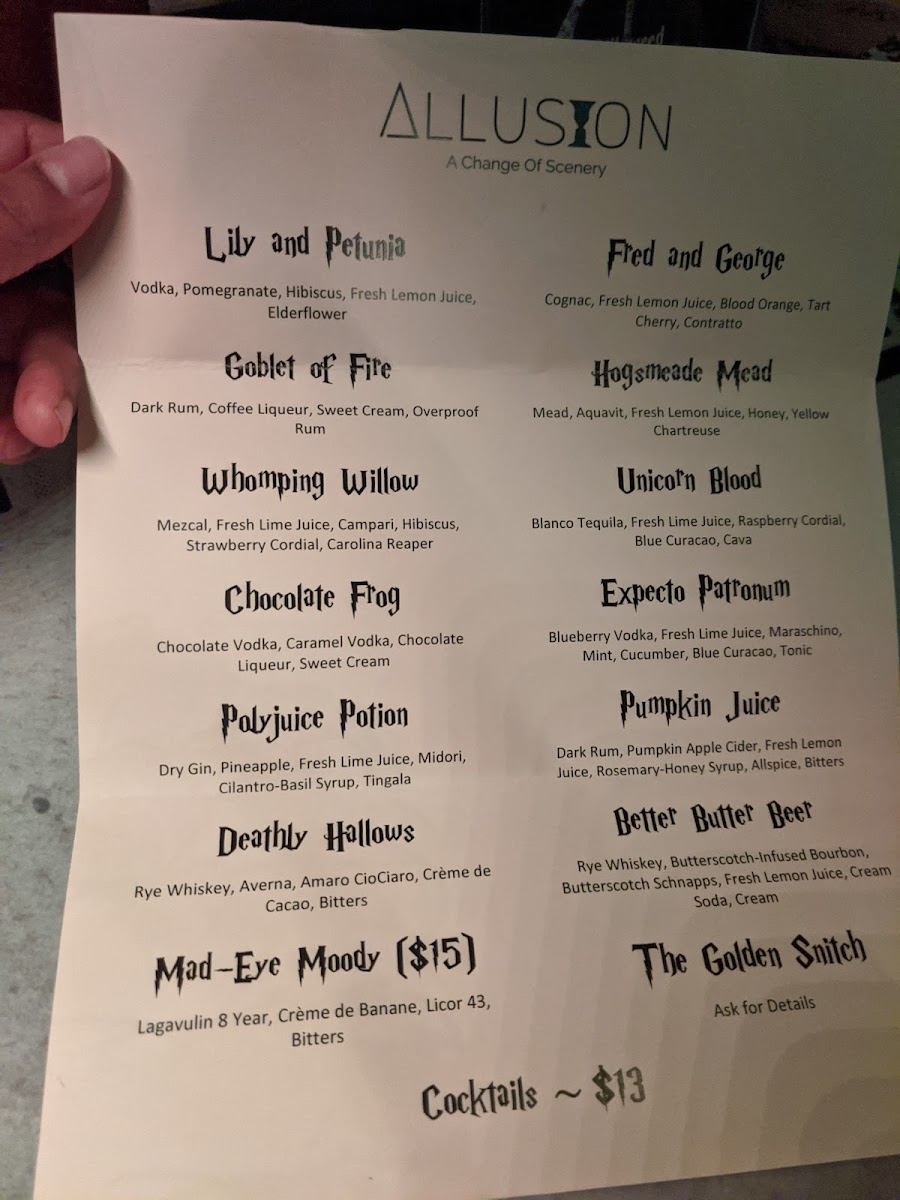 ALLUSION
A Change Of Scenery
Lily and Petunia
Vodka, Pomegranate, Hibiscus, Fresh Lemon Juice,
Elderflower
Goblet of Fire
Dark Rum, Coffee Liqueur, Sweet Cream, Overproof
Rum
Whomping Willow
Mezcal, Fresh Lime Juice, Campari, Hibiscus,
Strawberry Cordial, Carolina Reaper
Chocolate Frog
Chocolate Vodka, Caramel Vodka, Chocolate
Liqueur, Sweet Cream
Polyjuice Potion
Dry Gin, Pineapple, Fresh Lime Juice, Midori,
Cilantro-Basil Syrup, Tingala
Deathly Hallows
Rye Whiskey, Averna, Amaro CioCiaro, Crème de
Cacao, Bitters
Mad-Eye Moody ($15)
Lagavulin 8 Year, Crème de Banane, Licor 43,
Bitters
Fred and George
Cognac, Fresh Lemon Juice, Blood Orange, Tart
Cherry, Contratto
Hogsmeade Mead
Mead, Aquavit, Fresh Lemon Juice, Honey, Yellow
Chartreuse
Unicorn Blood
Blanco Tequila, Fresh Lime Juice, Raspberry Cordial,
Blue Curacao, Cava
Expecto Patronum
Blueberry Vodka, Fresh Lime Juice, Maraschino,
Mint, Cucumber, Blue Curacao, Tonic
Pumpkin Juice
Dark Rum, Pumpkin Apple Cider, Fresh Lemon
Juice, Rosemary-Honey Syrup, Allspice, Bitters
Better Butter Beer
Rye Whiskey, Butterscotch-Infused Bourbon,
Butterscotch Schnapps, Fresh Lemon Juice, Cream
Soda, Cream
The Golden Snitch
Ask for Details
Cocktails ~ $13